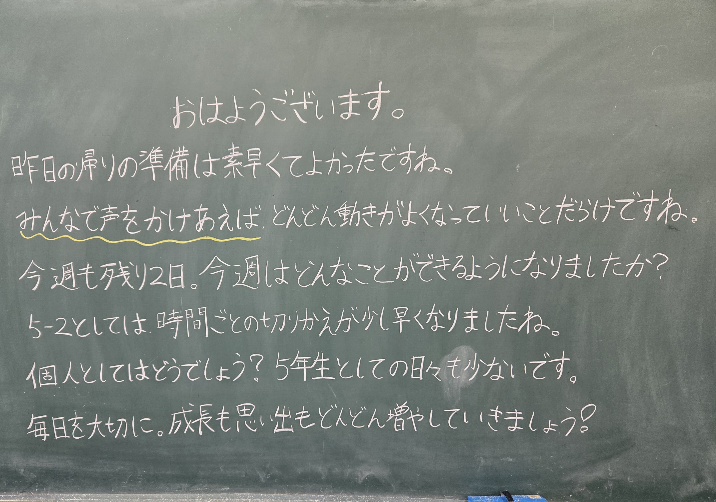 おはようございます。
昨日の帰りの準備は素早くてよかったですね。
みんなで声をかけあえば どんどん動きがよくなっていいことだらけですね。
今週も残り2日。今週はどんなことができるようになりましたか?
5-2としては 時間ごとの切りかえが少し早くなりましたね。
個人としてはどうでしょう? 5年生としての日々も少ないです。
毎日を大切に。成長も思い出もどんどん増やしていきましょう!